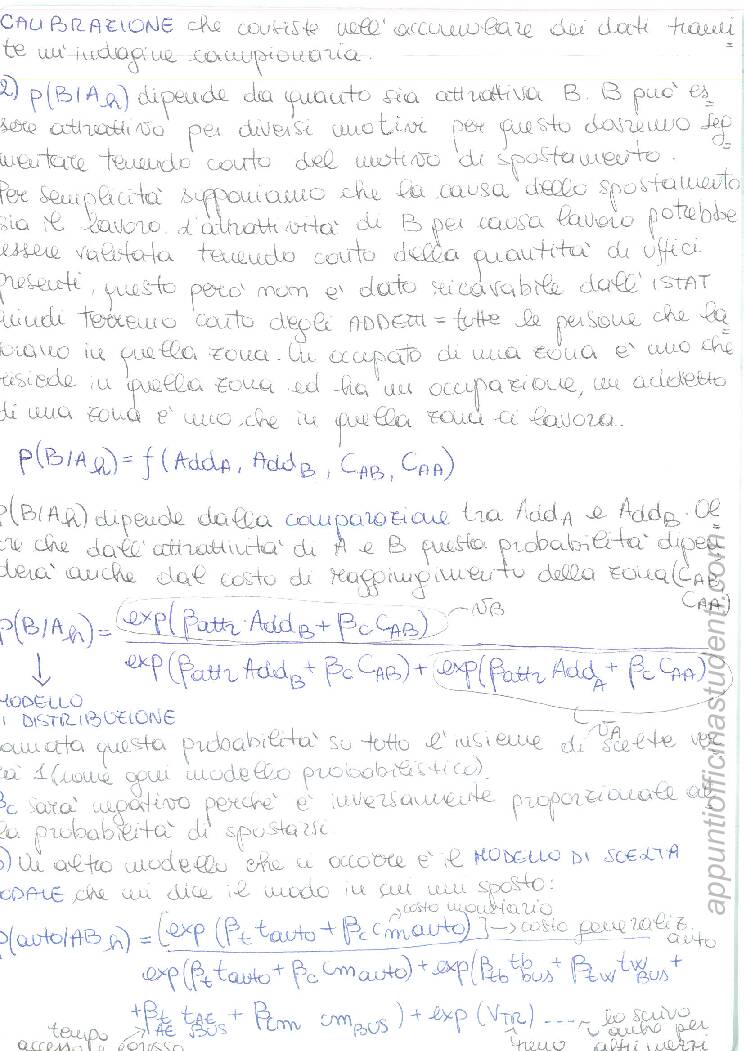 CALIBRAZIONE che consiste nell'accumulare dei dati trami
te un'indagine campionaria.
2) p(B/Ah) dipende da quanto sia attrattiva B. B può es
sere attrattivo per diversi motivi per questo dovremo seg
mentare tenendo conto del motivo di spostamento.
Per semplicità supponiamo che la causa dello spostamento
sia il lavoro. L'attrattività di B per causa lavoro potrebbe
essere valutata tenendo conto della quantità di uffici
presenti, questo però non è dato ricavabile dall'ISTAT
quindi terremo conto degli ADDETTI = tutte le persone che la
vorano in quella zona. Un occupato di una zona è uno che
risiede in quella zona ed ha un occupazione, un addetto
di una zona è uno che in quella zona ci lavora.
p(B/Ah) = f(AddA, AddB, CAB, CAA)
p(B/Ah) dipende dalla comparazione tra AddA e AddB. Ol
tre che dall'attrattività di A e B questa probabilità dipen
derà anche dal costo di raggiungimento della zona (CAB
CAA)
p(B/Ah) = exp(βattr AddB + βc CAB) → VB
exp(βattr AddB + βc CAB) + exp(βattr AddA + βc CAA)
VA
MODELLO
DI DISTRIBUZIONE
questa probabilità su tutto l'insieme di scelte
rà 1 (come ogni modello probabilistico).
βc sarà negativo perché è inversamente proporzionale al
la probabilità di spostarsi
3) Un altro modello che ci occorre è il MODELLO DI SCELTA
MODALE che mi dice il modo in cui mi sposto:
costo monetario
p(auto/ABh) = [exp(βt tauto + βc cmauto)] → costo generaliz.
auto
exp(βt tauto + βc cmauto) + exp(βtb tbBUS + βtw twBUS +
+ βtAE tAEBUS + βcm cmBUS) + exp(VTR) .... lo scrivo
tempo treno anche per
accesso egresso altri mezzi
appuntiofficinastudenti.com